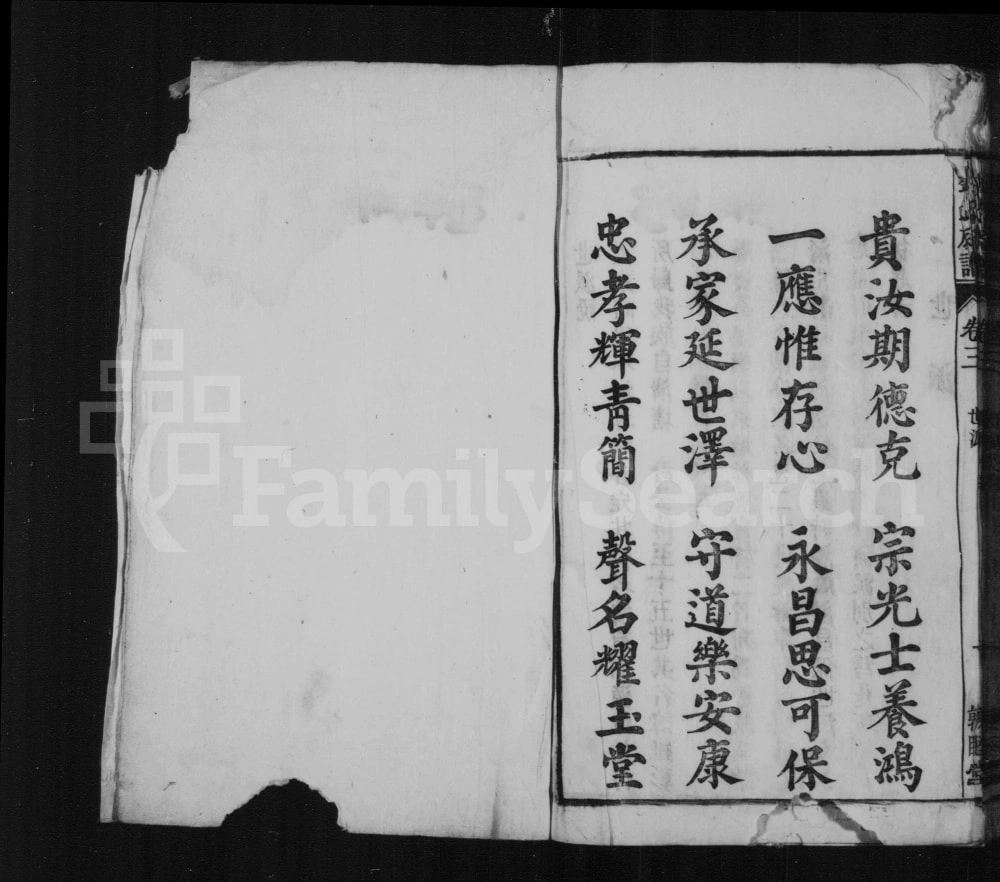 貴汝期德克 宗光士養鴻
一應惟存心 永昌思可保
承家延世澤 守道樂安康
忠孝輝青簡 聲名耀玉堂
卷三 世派
FamilySearch